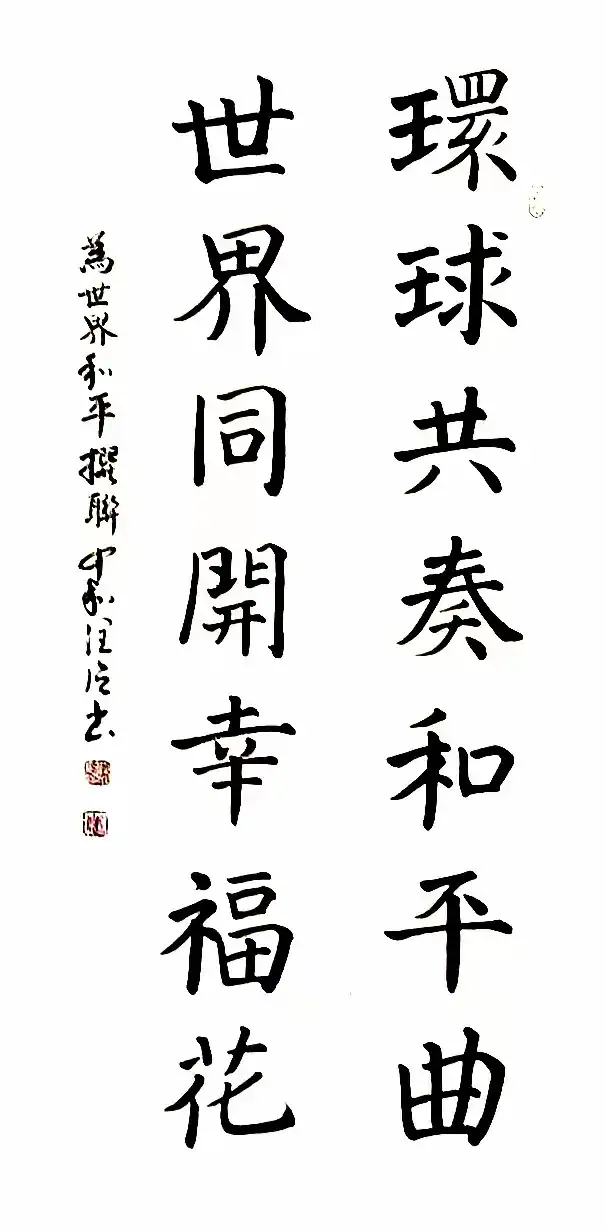 環球共奏和平曲
世界同開幸福花
為世界和平撰聯中和汪后書